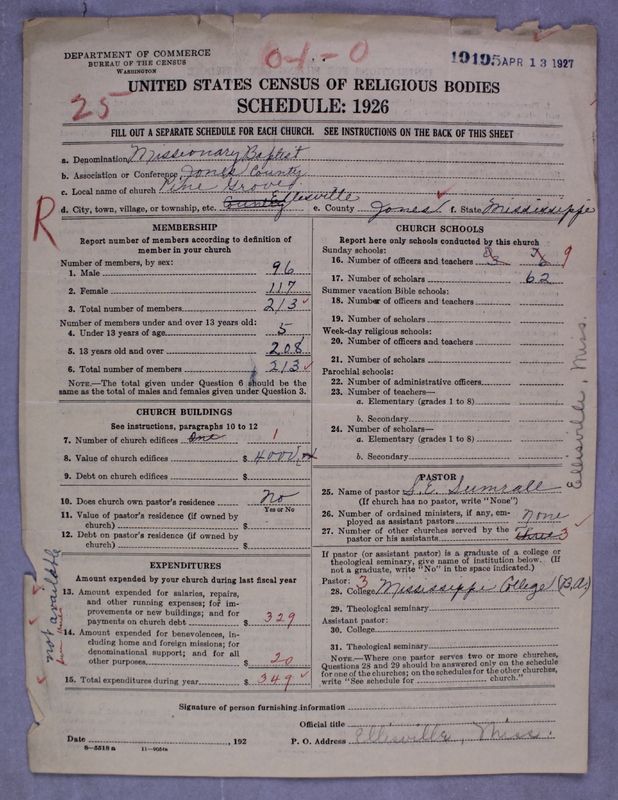 DEPARTMENT OF COMMERCE
BUREAU OF THE CENSUS
WASHINGTON
01-0
19195 APR 13 1927
25
UNITED STATES CENSUS OF RELIGIOUS BODIES
SCHEDULE: 1926
FILL OUT A SEPARATE SCHEDULE FOR EACH CHURCH. SEE INSTRUCTIONS ON THE BACK OF THIS SHEET
a. Denomination Missionary Baptist
b. Association or Conference Jones County
c. Local name of church Pine Grove
d. City, town, village, or township, etc. Ellisville e. County Jones f. State Mississippi
R
MEMBERSHIP
Report number of members according to definition of member in your church
Number of members, by sex:
1. Male 96
2. Female 117
3. Total number of members 213
Number of members under and over 13 years old:
4. Under 13 years of age 5
5. 13 years old and over 208
6. Total number of members 213
NOTE.—The total given under Question 6 should be the
same as the total of males and females given under Question 3.
CHURCH BUILDINGS
See instructions, paragraphs 10 to 12
7. Number of church edifices One 1
8. Value of church edifices $ 4000
9. Debt on church edifices $
10. Does church own pastor's residence No
Yes or No
11. Value of pastor's residence (if owned by
church) $
12. Debt on pastor's residence (if owned by
church) $
EXPENDITURES
Amount expended by your church during last fiscal year
13. Amount expended for salaries, repairs,
and other running expenses; for im-
provements or new buildings; and for
payments on church debt $ 329
14. Amount expended for benevolences, in-
cluding home and foreign missions; for
denominational support; and for all
other purposes $ 20
15. Total expenditures during year $ 349
not available
CHURCH SCHOOLS
Report here only schools conducted by this church
Sunday schools:
16. Number of officers and teachers 9
17. Number of scholars 62
Summer vacation Bible schools:
18. Number of officers and teachers
19. Number of scholars
Week-day religious schools:
20. Number of officers and teachers
21. Number of scholars
Parochial schools:
22. Number of administrative officers
23. Number of teachers—
a. Elementary (grades 1 to 8)
b. Secondary
24. Number of scholars—
a. Elementary (grades 1 to 8)
b. Secondary
Ellisville, Miss.
PASTOR
25. Name of pastor S. E. Sumrall
(If church has no pastor, write "None")
26. Number of ordained ministers, if any, em-
ployed as assistant pastors None
27. Number of other churches served by the
pastor or his assistants Three 3
If pastor (or assistant pastor) is a graduate of a college or
theological seminary, give name of institution below. (If
not a graduate, write "No" in the space indicated.)
Pastor: 3
28. College Mississippi College (B.A.)
29. Theological seminary
Assistant pastor:
30. College
31. Theological seminary
NOTE.—Where one pastor serves two or more churches,
Questions 28 and 29 should be answered only on the schedule
for one of the churches; on the schedules for the other churches,
write "See schedule for church."
Signature of person furnishing information
Official title
Date , 192 P. O. Address Ellisville, Miss.
8—5518 a 11—9054a